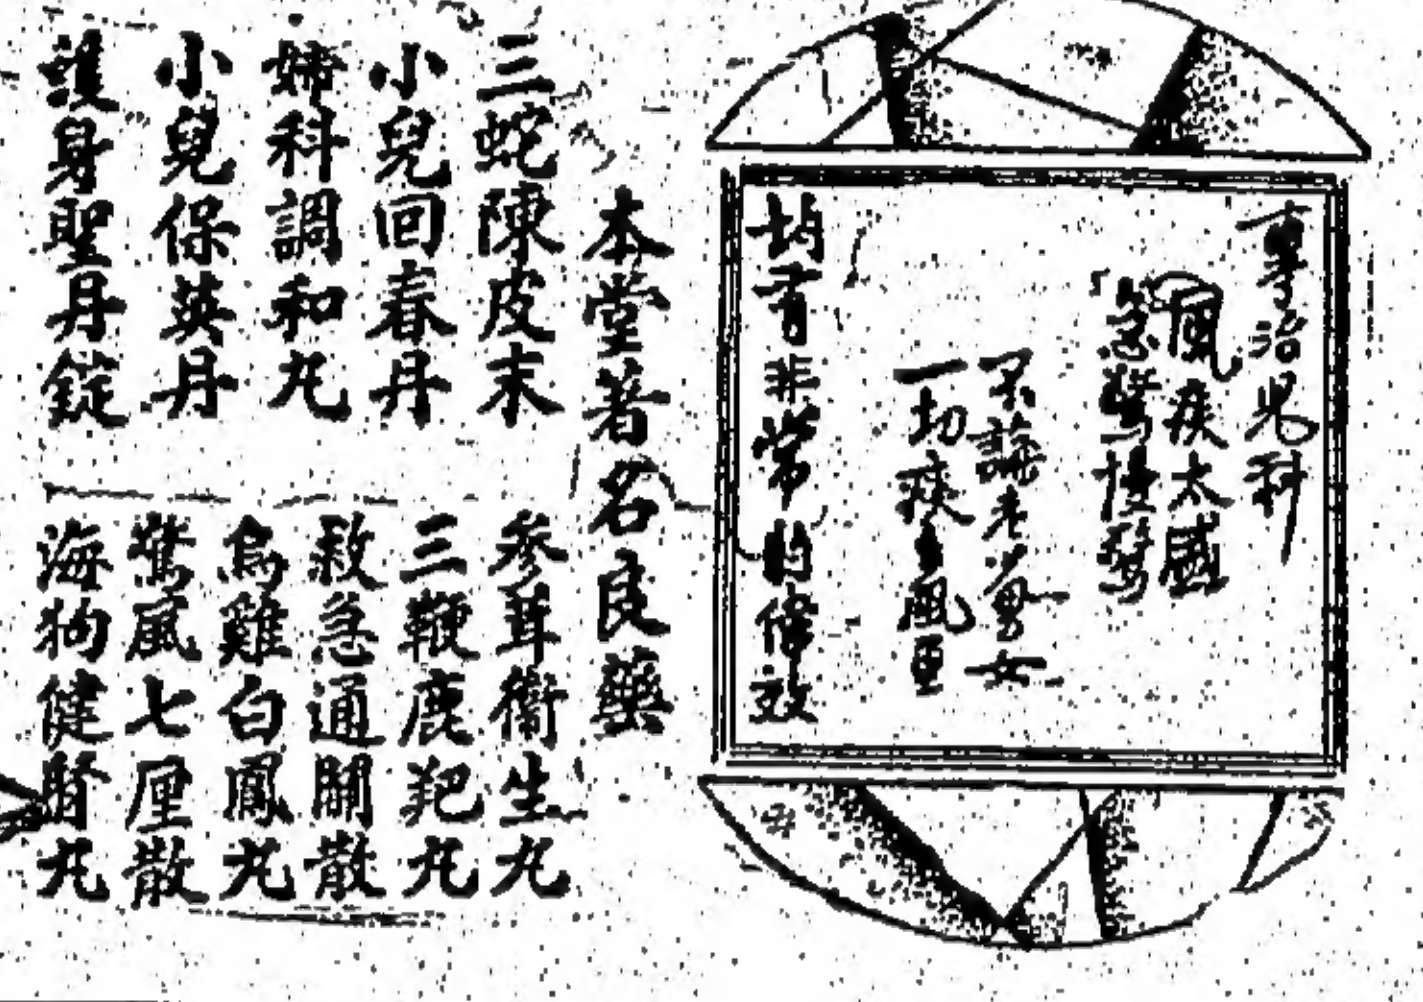 專治兒科
風痰太盛
急驚慢驚
不論老幼男女
一切痰
均有非常的偉效
本堂著名良藥
三蛇陳皮末
小兒回春丹
婦科調和丸
小兒保英丹
護身聖丹錠
參茸衛生丸
三鞭鹿羓丸
救急通關散
烏雞白鳳丸
驚風七厘散
海狗健腎丸